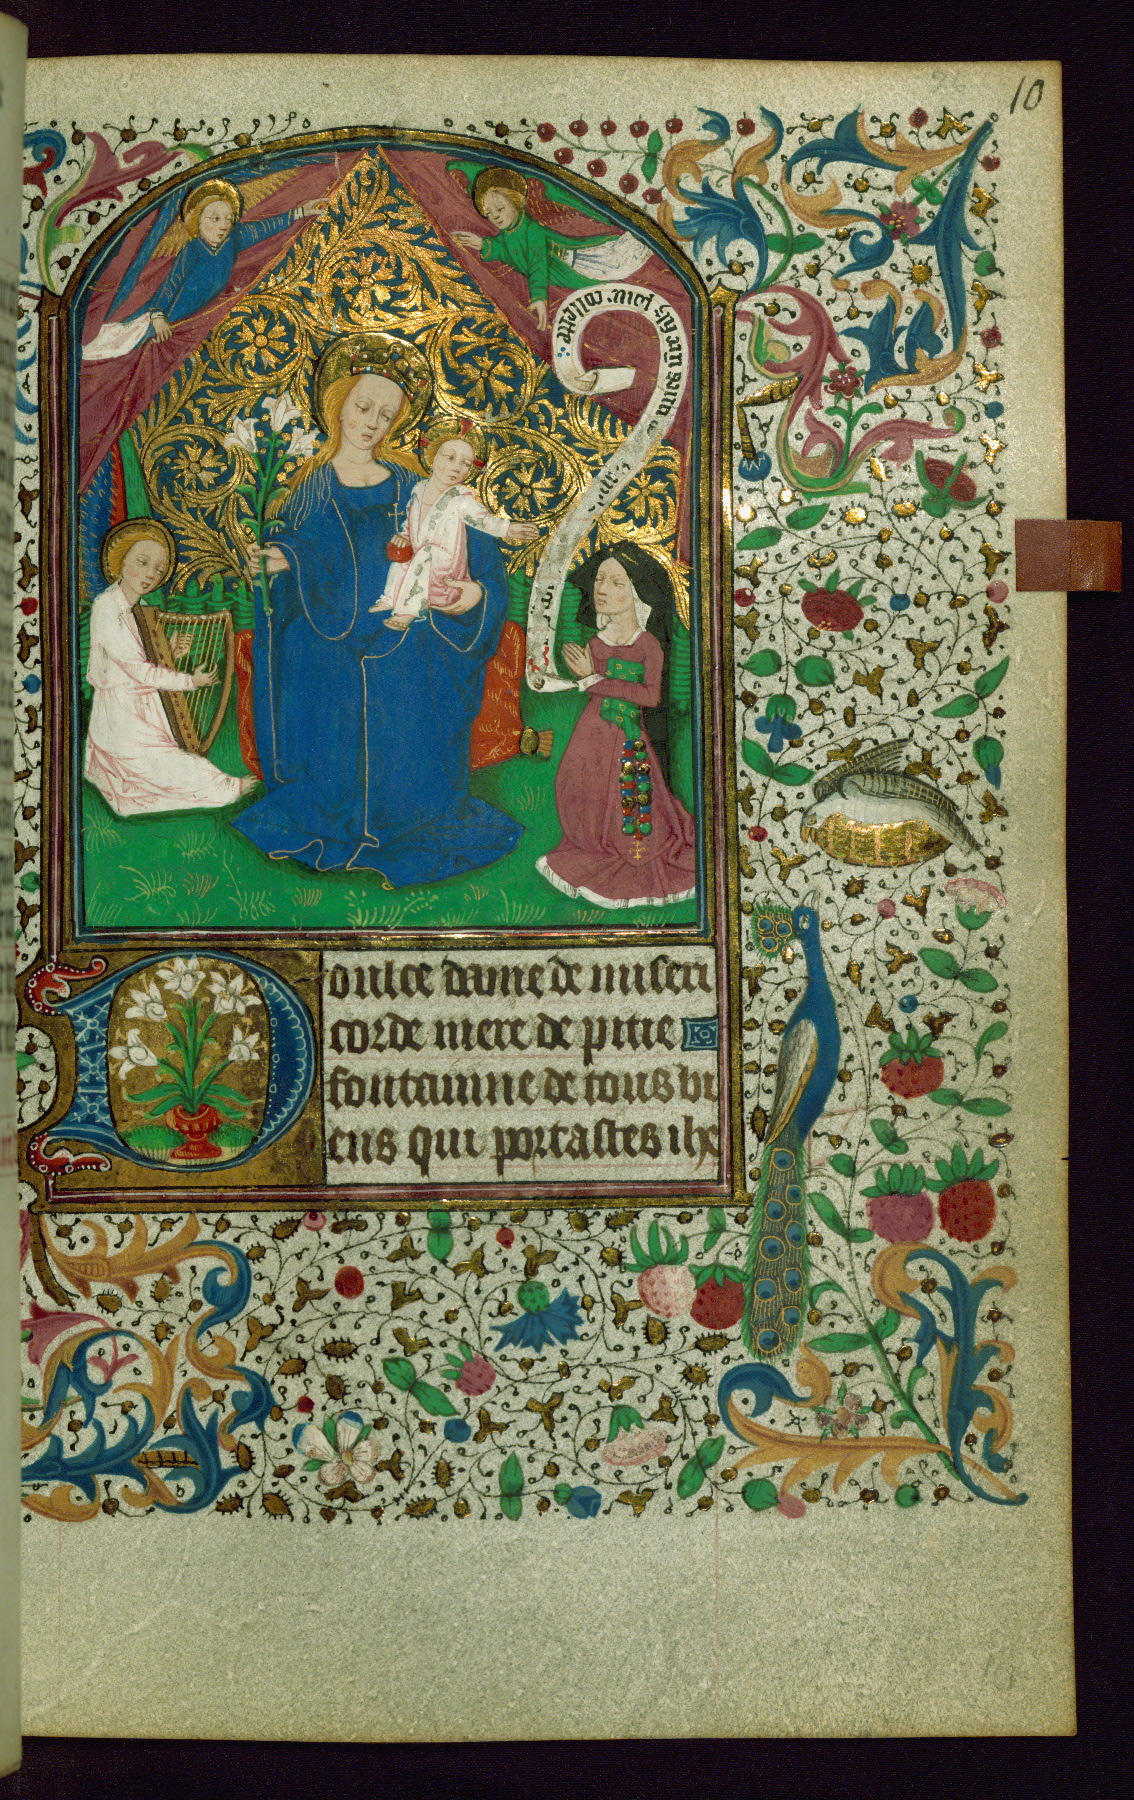 10
collette
doulce dame de miseri
corde mere de pitie
fontainne de tous bi
ens qui portastes ihx